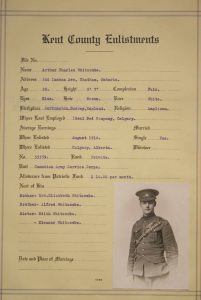 Kent County Enlistments
File No.
Name Arthur Charles Whitcombe.
Address Chatham, Ontario.
Age Height 5' 7" Complexion Fair.
Eyes Blue. Hair Brown. Race White.
Birthplace England. Religion
Where Last Employed Company, Calgary.
Average Earnings Married
When Enlisted August 1914. Single Yes.
Where Enlisted Calgary, Alberta. Widower
No. Rank Private.
Unit Canadian Army Service Corps.
Allowance from Patriotic Fund per month.
Next of Kin
Mother- Mrs. Elizabeth Whitcombe.
Brother- Alfred Whitcombe.
Sister- Edith Whitcombe.
- Eleanor Whitcombe.
Date and Place of Marriage